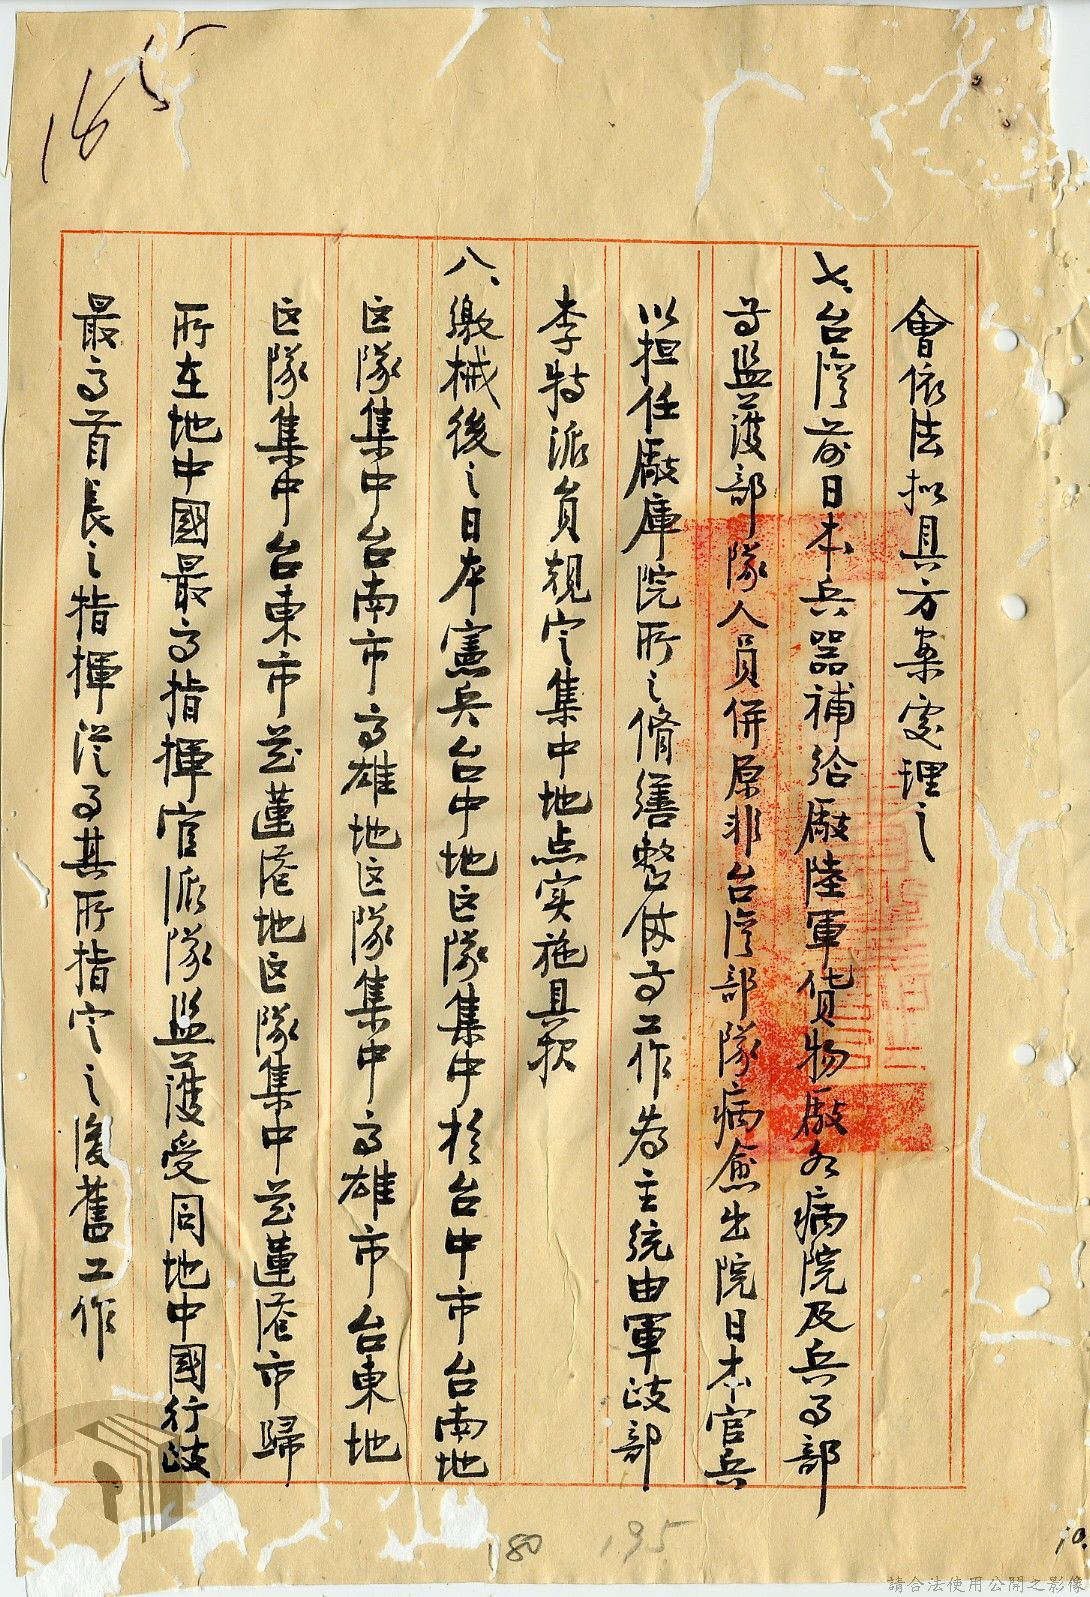 165
會依法拟具方案處理之
七、台灣前日本兵器補給廠陸軍貨物廠各病院及兵事部
等監護部隊人員併原非台灣部隊病愈出院日本官兵
以担任廠庫院所之修繕整備等工作為主統由軍政部
李特派員規定集中地点实施具報
八、繳械後之日本憲兵台中地区隊集中於台中市台南地
区隊集中台南市高雄地区隊集中高雄市台東地
区隊集中台東市花蓮港地区隊集中花蓮港市歸
所在地中國最高指揮官派隊監護受同地中國行政
最高首長之指揮從事其所指定之復舊工作
180 195
10.
請合法使用公開之影像